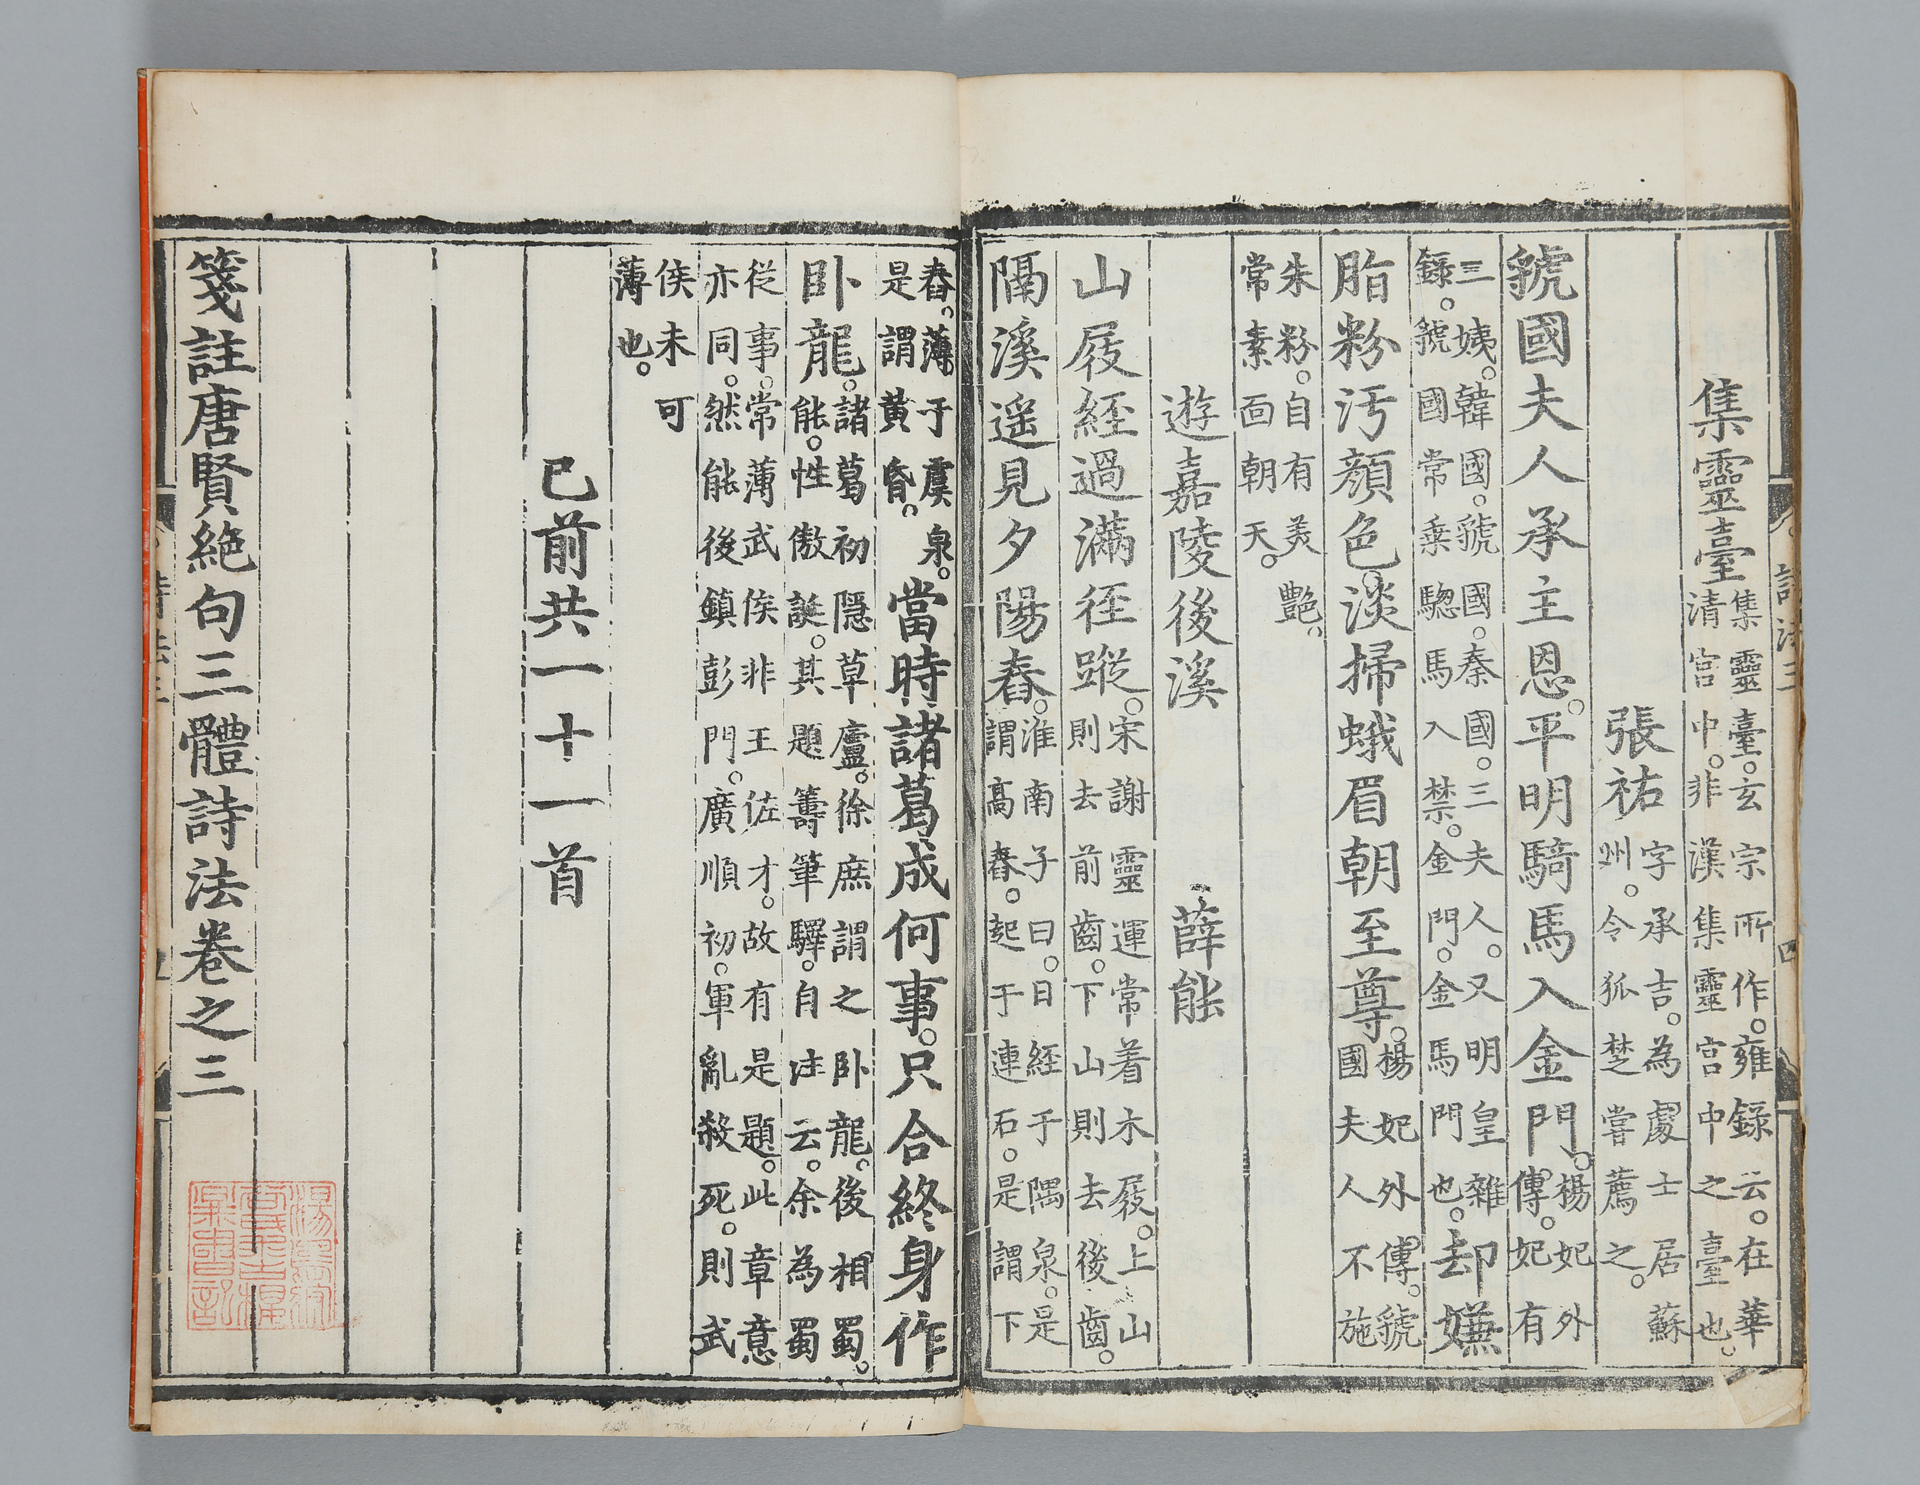 集靈臺集靈臺。玄宗所作。雍錄云。在華清宮中。非漢集靈宮中之臺也。
張祐字承吉。為處士居蘇州。令狐楚嘗薦之。
虢國夫人承主恩。平明騎馬入金門。楊妃外傳。妃有
三姨。韓國。虢國。秦國。三夫人。又明皇雜錄。虢國常乗驄馬入禁。金門。金馬門也。却嫌
脂粉汚顔色。淡掃蛾眉朝至尊。楊妃外傳。虢國夫人不施
朱粉。自有美艷。常素面朝天。
遊嘉陵後溪 薛能
山屐経過滿徑蹤。宋謝靈運常着木屐。上山則去前齒。下山則去後齒。
隔溪遥見夕陽舂。淮南子曰。日経于隅泉。是謂高舂。起于連石。是謂下
舂。薄于虞泉。是謂黄昏。當時諸葛成何事。只合終身作
卧龍。諸葛初隱草廬。徐庶謂之卧龍。後相蜀。能。性傲誕。其題籌筆驛。自注云。余為蜀
從事。常薄武侯非王佐才。故有是題。此章意亦同。然能後鎮彭門。廣順初。軍亂殺死。則武
侯未可薄也。
已前共一十一首
箋註唐賢絶句三體詩法卷之三